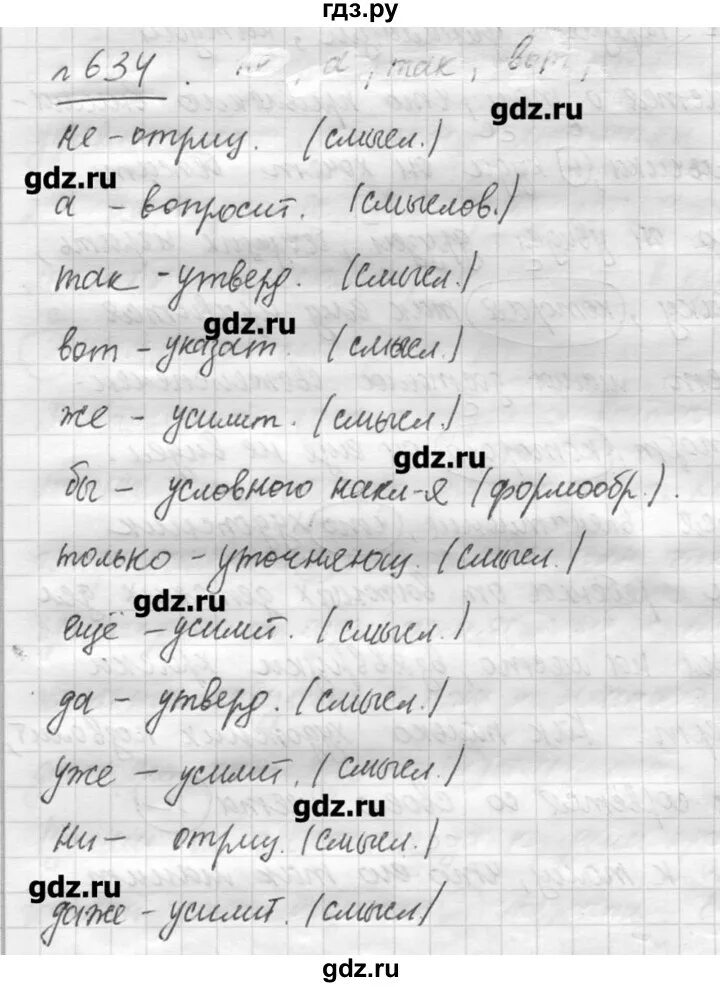 гдз.ру
№634. не, а, так, вот,
gdz.ru
не - отриц. (смысл.)
gdz.ru
а - вопросит. (смыслов.)
так - утверд. (смысл.)
gdz.ru
вот - указат. (смысл.)
же - усилит. (смысл.)
gdz.ru
бы - условного накл-я (формообр.).
только - уточняющ. (смысл.)
gdz.ru
ещё - усилит. (смысл.)
да - утверд. (смысл.)
уже - усилит. (смысл.)
gdz.ru
ни - отриц. (смысл.)
gdz.ru
даже - усилит. (смысл)
gdz.ru